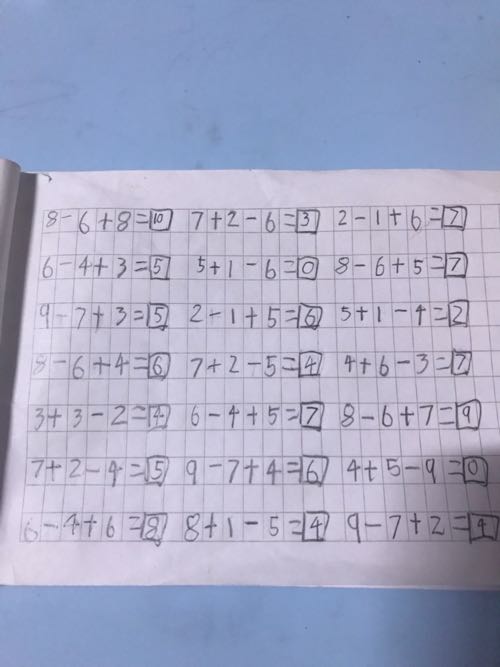 8-6+8=10 7+2-6=3 2-1+6=7
6-4+3=5 5+1-6=0 8-6+5=7
9-7+3=5 2-1+5=6 5+1-4=2
8-6+4=6 7+2-5=4 4+6-3=7
3+3-2=4 6-4+5=7 8-6+7=9
7+2-4=5 9-7+4=6 4+5-9=0
6-4+6=8 8+1-5=4 9-7+2=4